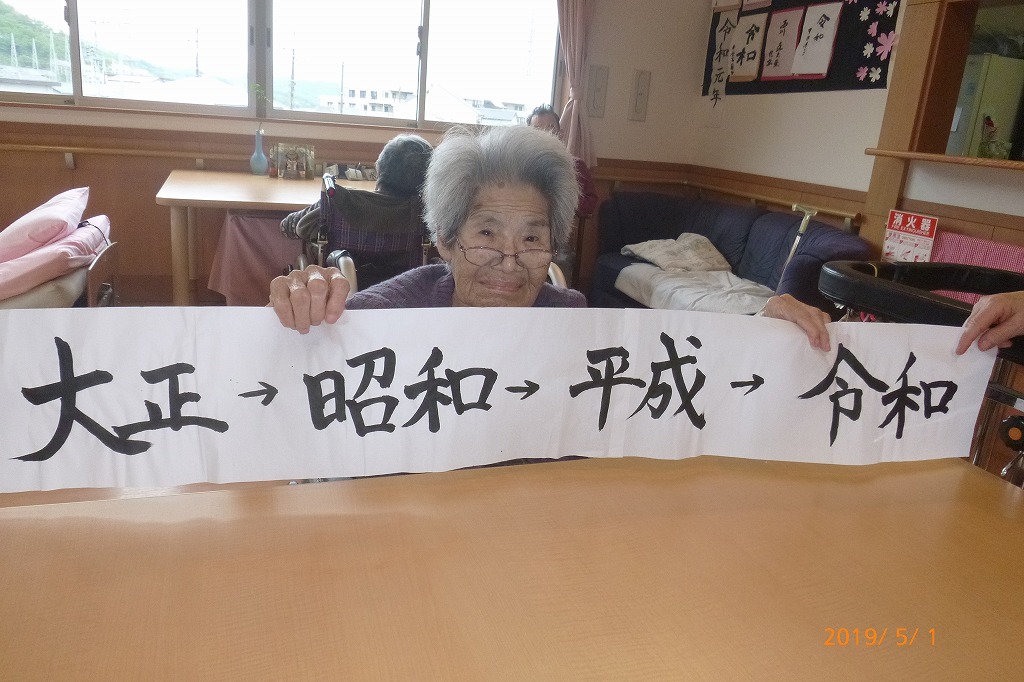 令和元年
令和
令和
大正→昭和→平成→令和
消火器
FIRE EXTINGUISHER
2019/ 5/ 1